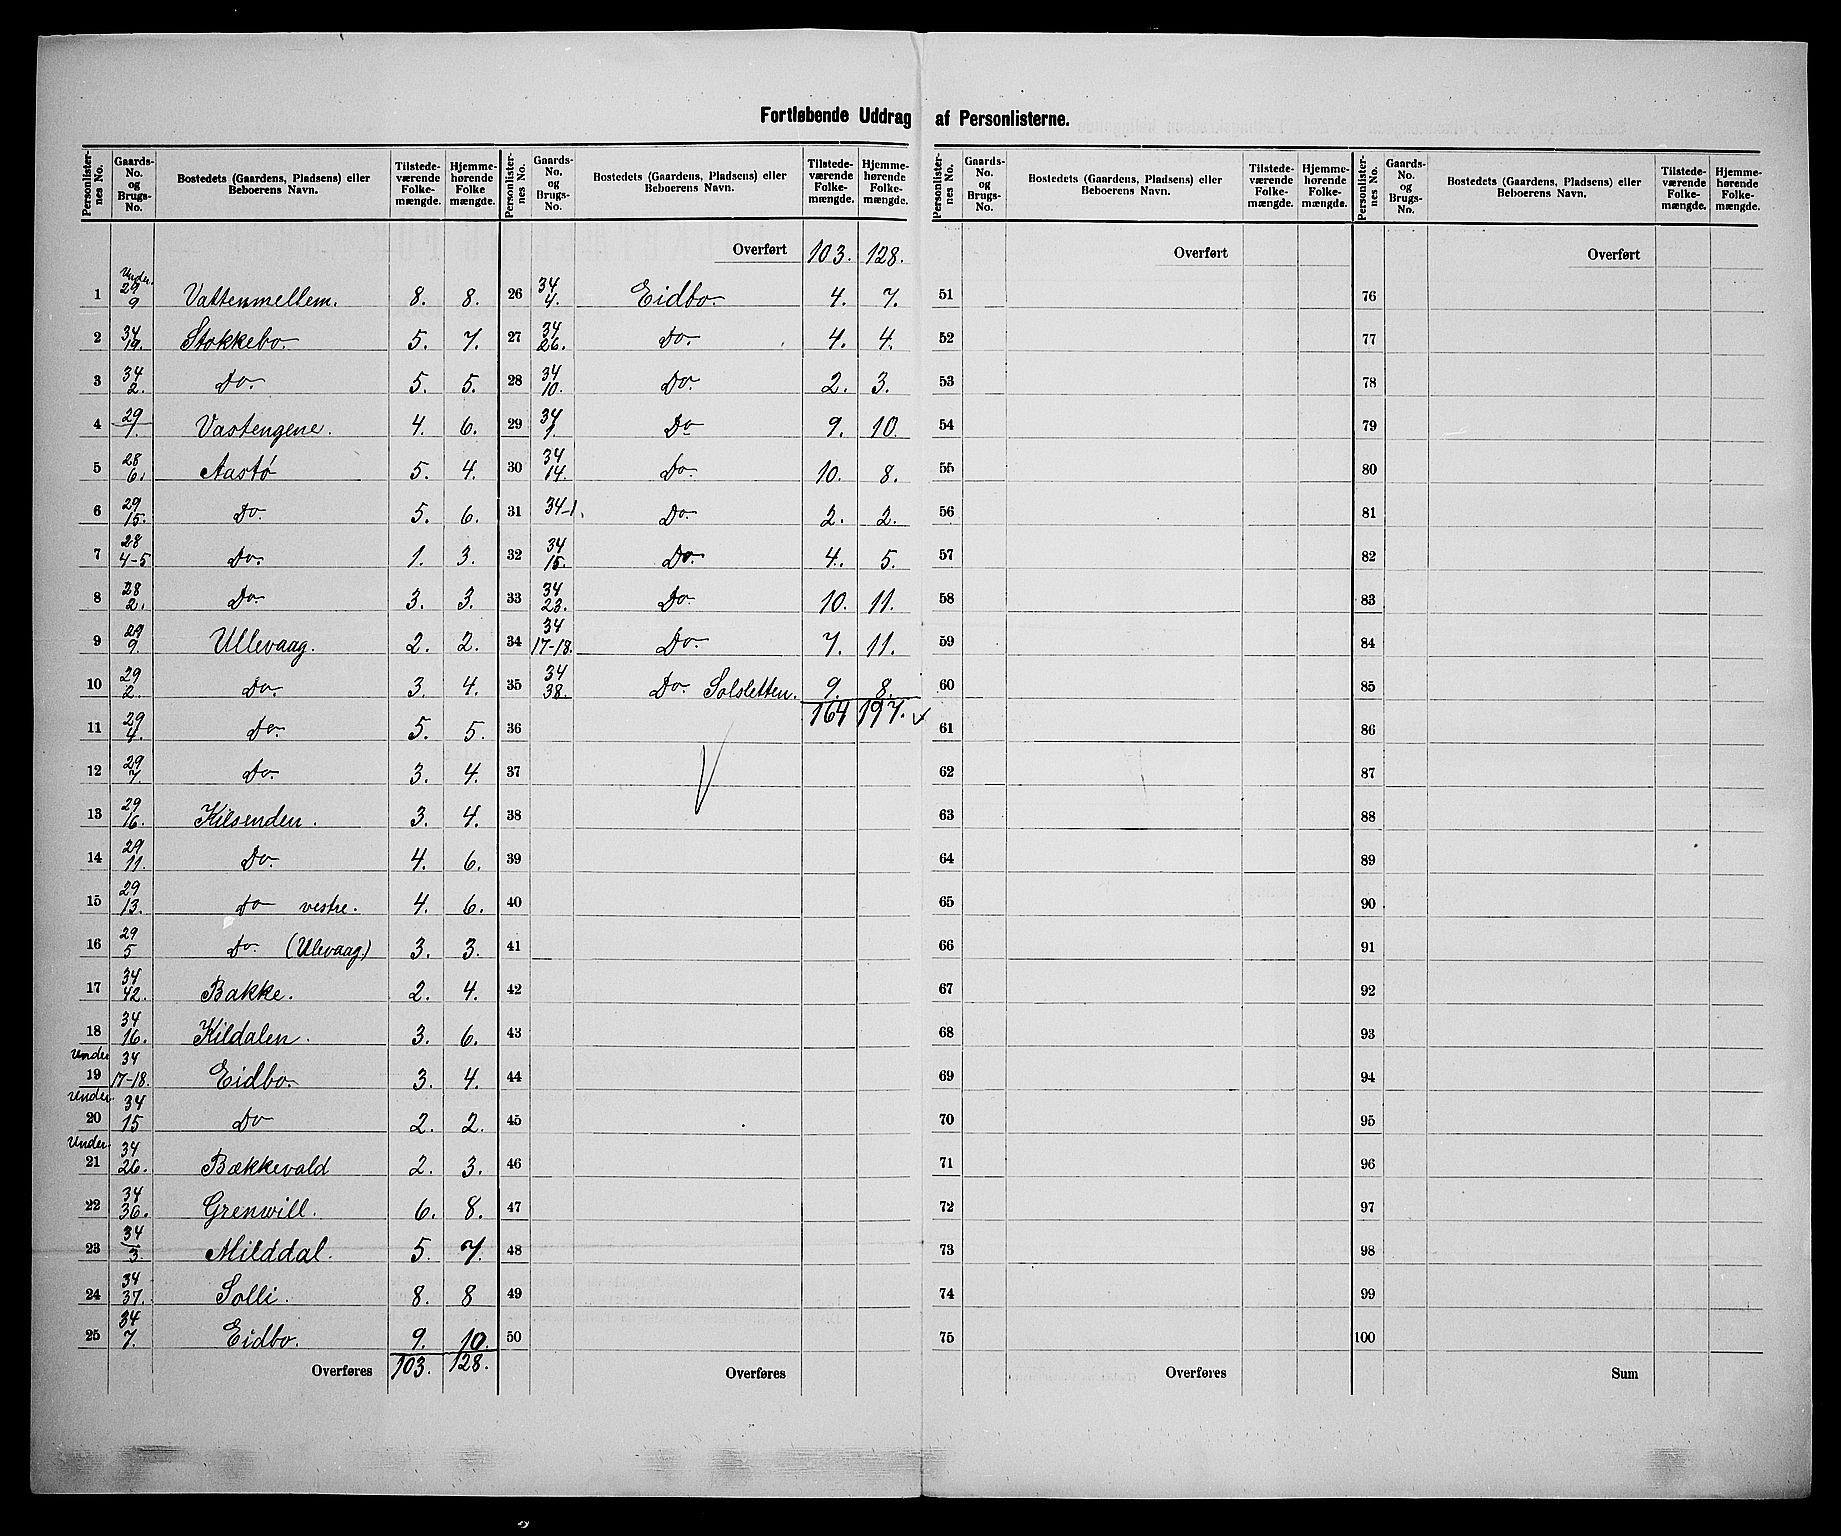 Fortløbende Uddrag af Personlisterne.
Personlister-nes No. | Gaards-No. og Brugs-No. | Bostedets (Gaardens, Pladsens) eller Beboerens Navn. | Tilstede-værende Folke-mængde. | Hjemme-hørende Folke mængde.
1 | Under 29 9 | Vattenmellem. | 8. | 8.
2 | 34 19. | Stokkebo. | 5. | 7.
3 | 34 2. | Do. | 5. | 5.
4 | 29 1. | Vastengene. | 4. | 6.
5 | 28 6. | Aastø | 5. | 4.
6 | 29 15. | Do. | 5. | 6.
7 | 28 4-5 | Do. | 1. | 3.
8 | 28 2. | Do. | 3. | 3.
9 | 29 9. | Ullevaag. | 2. | 2.
10 | 29 2. | Do. | 3. | 4.
11 | 29 4. | Do. | 5. | 5.
12 | 29 7. | Do. | 3. | 4.
13 | 29 16. | Kilsenden. | 3. | 4.
14 | 29 11. | Do. | 4. | 6.
15 | 29 13. | Do vestre. | 4. | 6.
16 | 29 5 | Do. (Ulevaag) | 3. | 3.
17 | 34 42. | Bakke. | 2. | 4.
18 | 34 16. | Kildalen. | 3. | 6.
Under 19 | 34 17-18. | Eidbo. | 3. | 4.
Under 20 | 34 15 | Do | 2. | 2.
Under 21 | 34 26. | Bækkevald | 2. | 3.
22 | 34 36. | Grenwill. | 6. | 8.
23 | 34 3. | Milddal. | 5. | 7.
24 | 34 37. | Solli. | 8. | 8
25 | 34 7. | Eidbo. | 9. | 10.
Overføres | 103. | 128.
Personlister-nes No. | Gaards-No. og Brugs-No. | Bostedets (Gaardens, Pladsens) eller Beboerens Navn. | Tilstede-værende Folke-mængde. | Hjemme-hørende Folke-mængde.
Overført | 103. | 128.
26 | 34 4. | Eidbo. | 4. | 7.
27 | 34 26. | Do. | 4. | 4.
28 | 34 10. | Do. | 2. | 3.
29 | 34 1. | Do | 9. | 10.
30 | 34 14. | Do. | 10. | 8.
31 | 34-1. | Do. | 2. | 2.
32 | 34 15. | Do. | 4. | 5.
33 | 34 23. | Do. | 10. | 11.
34 | 34 17-18. | Do. | 7. | 11.
35 | 34 38. | Do. Solsletten. | 9. | 8.
36 | 164 | 197.
37
38
39
40
41
42
43
44
45
46
47
48
49
50
Overføres
Personlister-nes No. | Gaards-No. og Brugs-No. | Bostedets (Gaardens, Pladsens) eller Beboerens Navn. | Tilstede-værende Folke-mængde. | Hjemme-hørende Folke-mængde.
Overført
51
52
53
54
55
56
57
58
59
60
61
62
63
64
65
66
67
68
69
70
71
72
73
74
75
Overføres
Personlister-nes No. | Gaards-No. og Brugs-No. | Bostedets (Gaardens, Pladsens) eller Beboerens Navn. | Tilstede-værende Folke-mængde. | Hjemme-hørende Folke-mængde.
Overført
76
77
78
79
80
81
82
83
84
85
86
87
88
89
90
91
92
93
94
95
96
97
98
99
100
Sum